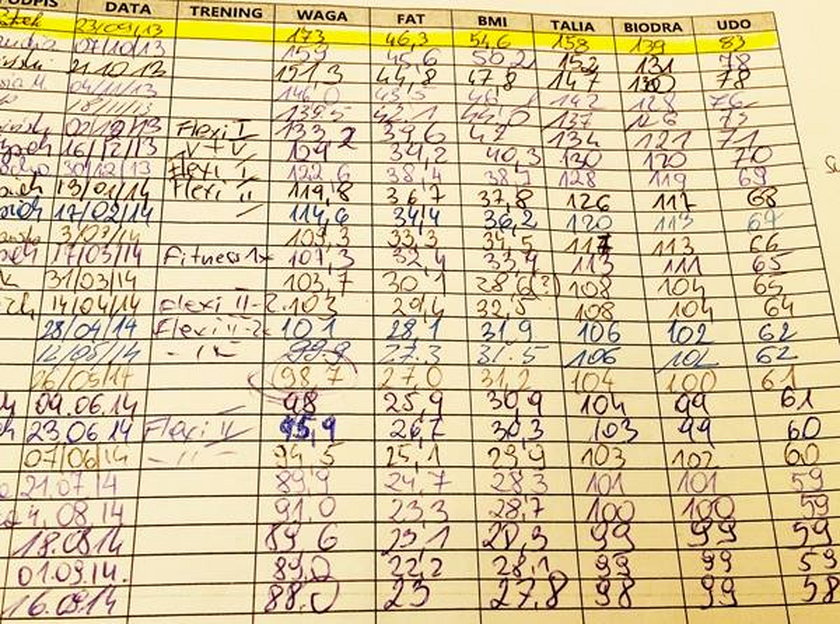 PODPIS DATA TRENING WAGA FAT BMI TALIA BIODRA UDO
23/09/13 173 46,3 54,6 158 139 83
07/10/13 159 45,6 50,2 152 131 78
21.10.13 151,3 44,8 47,8 147 130 78
04/11/13 146,0 43,5 142 128 76
18/11/13 139,5 42,1 44,0 137 126 75
02/12/13 Flexi I 133,2 39,6 42 134 121 71
16/12/13 39,2 40,3 130 120 70
30/12/13 Flexi I 122,6 38,4 38,7 128 119 69
13/01/14 Flexi II 119,8 36,7 37,8 126 117 68
17/02/14 114,6 34,4 36,2 120 113 67
3/03/14 109,3 33,3 34,5 117 113 66
17/03/14 Fitness 1x 107,3 32,4 33,9 113 111 65
31/03/14 103,7 30,1 28,6(?) 108 104 65
14/04/14 Flexi II-2. 103 29,4 32,5 108 104 64
28/04/14 Flexi II-2x 101 28,1 31,9 106 102 62
12/05/14 - 11 - 99.9 27.3 31.5 106 102 62
26/05/14 98,7 27,0 31,2 104 100 61
09.06.14 98 25,9 30,9 104 99 61
23.06.14 Flexi II 95,9 26,7 30,3 103 99 60
07/06/14 - 11 - 94,5 25,1 29,9 103 102 60
21.07.14 89,9 24,7 28,3 101 101 59
4.08.14 91,0 23,3 28,7 100 100 59
18.0814 89,6 23,1 28,3 99 99 59
01.09.14. 89,0 22,2 28,1 99 99 59
16.0914 88.0 23 27,8 98 99 58